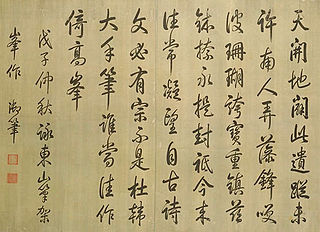 天開地闢此遺蹤未
許庸人弄藻鋒咲
彼珊瑚誇寶重鎮茲
永提封祇今來
往常凝望自古詩
文必有宗不是杜韓
大手筆誰當佳作
倚高峯
戊子仲秋詠東山筆架
峯作 御筆